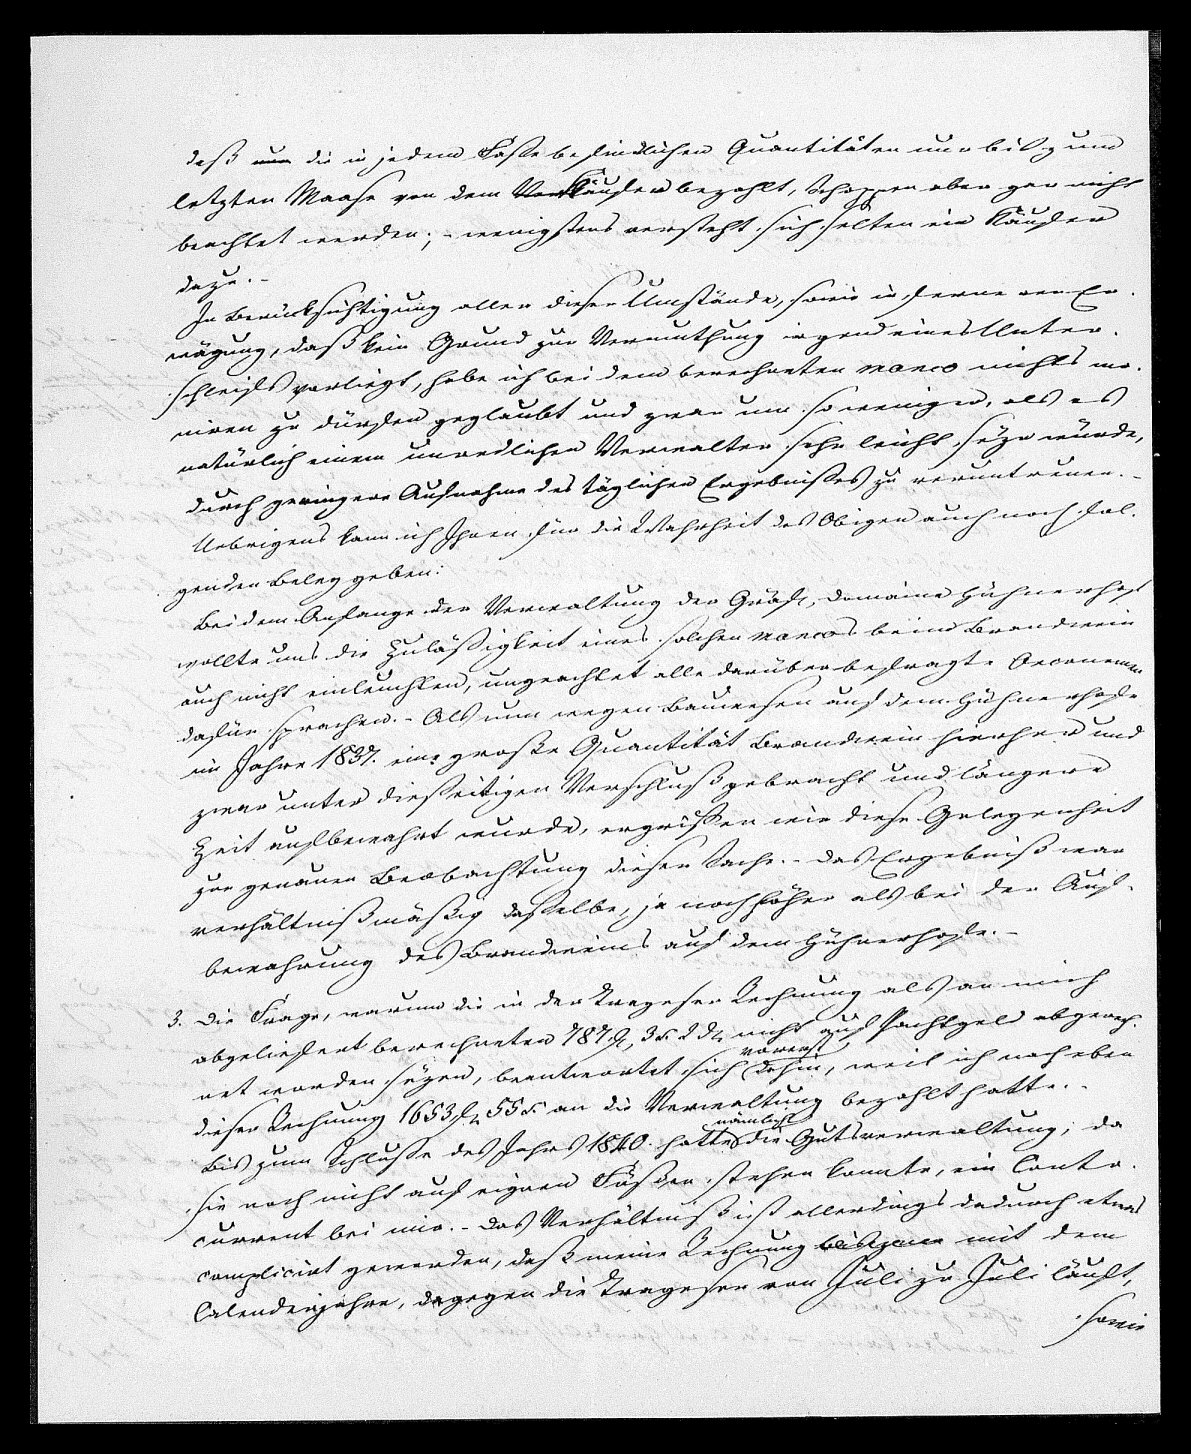 daß nur die in jedem Fasse befindlichen Quantitäten nur bis zum
letzten Maase von dem Verkäufer bezahlt, Schoppen aber gar nicht
beachtet werden; - wenigstens versteht sich selten ein Käufer
dazu. -
In Berücksichtigung aller dieser Umstände, sowie in ferner Er-
wägung, daß kein Grund zur Vermuthung irgend eines Unter-
schleifs vorliegt, habe ich bei dem berechneten manco nichts mo-
niren zu dürfen geglaubt und zwar um so weniger, als es
natürlich einem unredlichen Verwalter sehr leicht seyn würde,
durch geringere Aufnahme des täglichen Ergebnißes zu veruntreuen. -
Uebrigens kann ich Ihnen für die Wahrheit des Obigen auch noch fol-
genden Beleg geben:
Bei dem Anfange der Verwaltung der Gräfl. Domaine Hühnerhof
wollte uns die Zuläßigkeit eines solchen mancos beim Brandwein
auch nicht einleuchten, ungeachtet alle darüber befragte Oeconomen
dafür sprachen. - Als nun wegen Bauwesen auf dem Hühnerhofe
im Jahre 1837. eine große Quantität Brandwein hierher und
zwar unter dießeitigen Verschluß gebracht und längere
Zeit aufbewahrt wurde, ergriffen wir diese Gelegenheit
zur genauen Beobachtung dieser Sache. - Das Ergebniß war
verhältnißmäßig dasselbe, ja noch höher als bei der Auf-
bewahrung des Brandweins auf dem Hühnerhofe. -
3. Die Frage, warum die in der Trageser Rechnung als an mich
abgeliefert berechneten 787 fl, 3 x. 2 d. nicht auf Pachtgeld abgerech-
net worden seyen, beantwortet sich vorerst dahin, weil ich nach eben
dieser Rechnung 1653 fl 55 x. an die Verwaltung bezahlt hatte. -
Bis zum Schlusse des Jahrs 1840. hatte nämlich die Gutsverwaltung, da
sie noch nicht auf eignen Füßen stehen konnte, ein Conto-
current bei mir. - Das Verhältniß ist allerdings dadurch etwas
complicirt geworden, daß meine Rechnung mit dem
Calenderjahre, dagegen die Trageser von Juli zu Juli läuft,
sowie